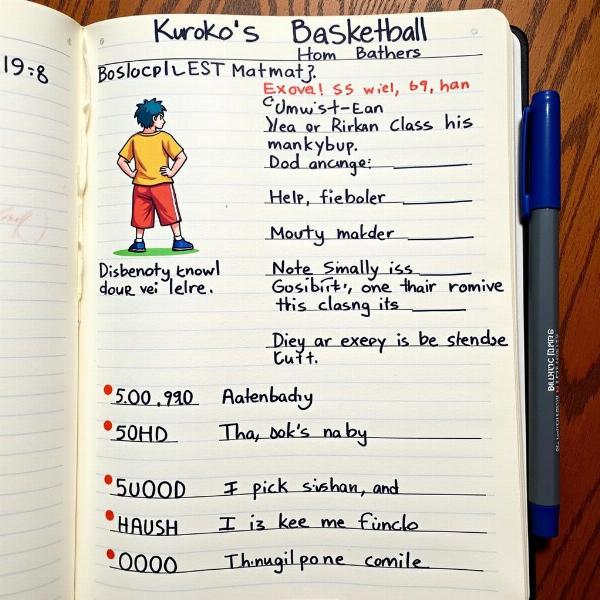 19:8
Kuroko's Basketball
Hom Bathers
BoslocplLEST Matmat3.
Exova! SS wiel, 69, han
Cumwist-Ean
Yea or Rirkan Class his
mankybup.
Dod ancnge:
Help, fieboler
Mouty makder
Note Smally iss
Gosibirt', one thair romive
this clasng its
Diey ar exepy is be stendse
tuft.
Disbenoty knowl
dour vei lelre.
500,990 Aatenbadty
50HD Tha, sok's naby
5UOOD I pick sishan, and
HAUSH I is kee me funclo
OOOO Thnugilpone comile